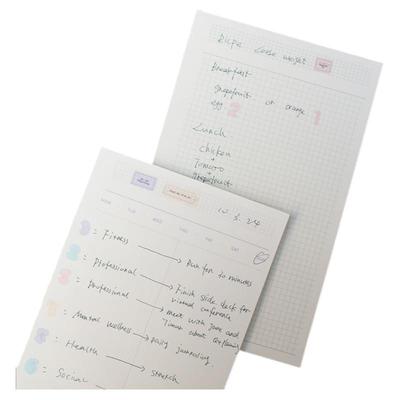 Loose weight
Breakfast
grapefruit or orange
egg 2 1
Lunch
chicken
+
Tomato
+
Grapefruit
MON TUE WED THU FRI SAT
: Fitness → Run for 10 minutes
: Professional → Finish slide deck for
virtual conference
: Professional → meet with Jane and
: Mental wellness → Daily journaling.
: Health → stretch
: Social